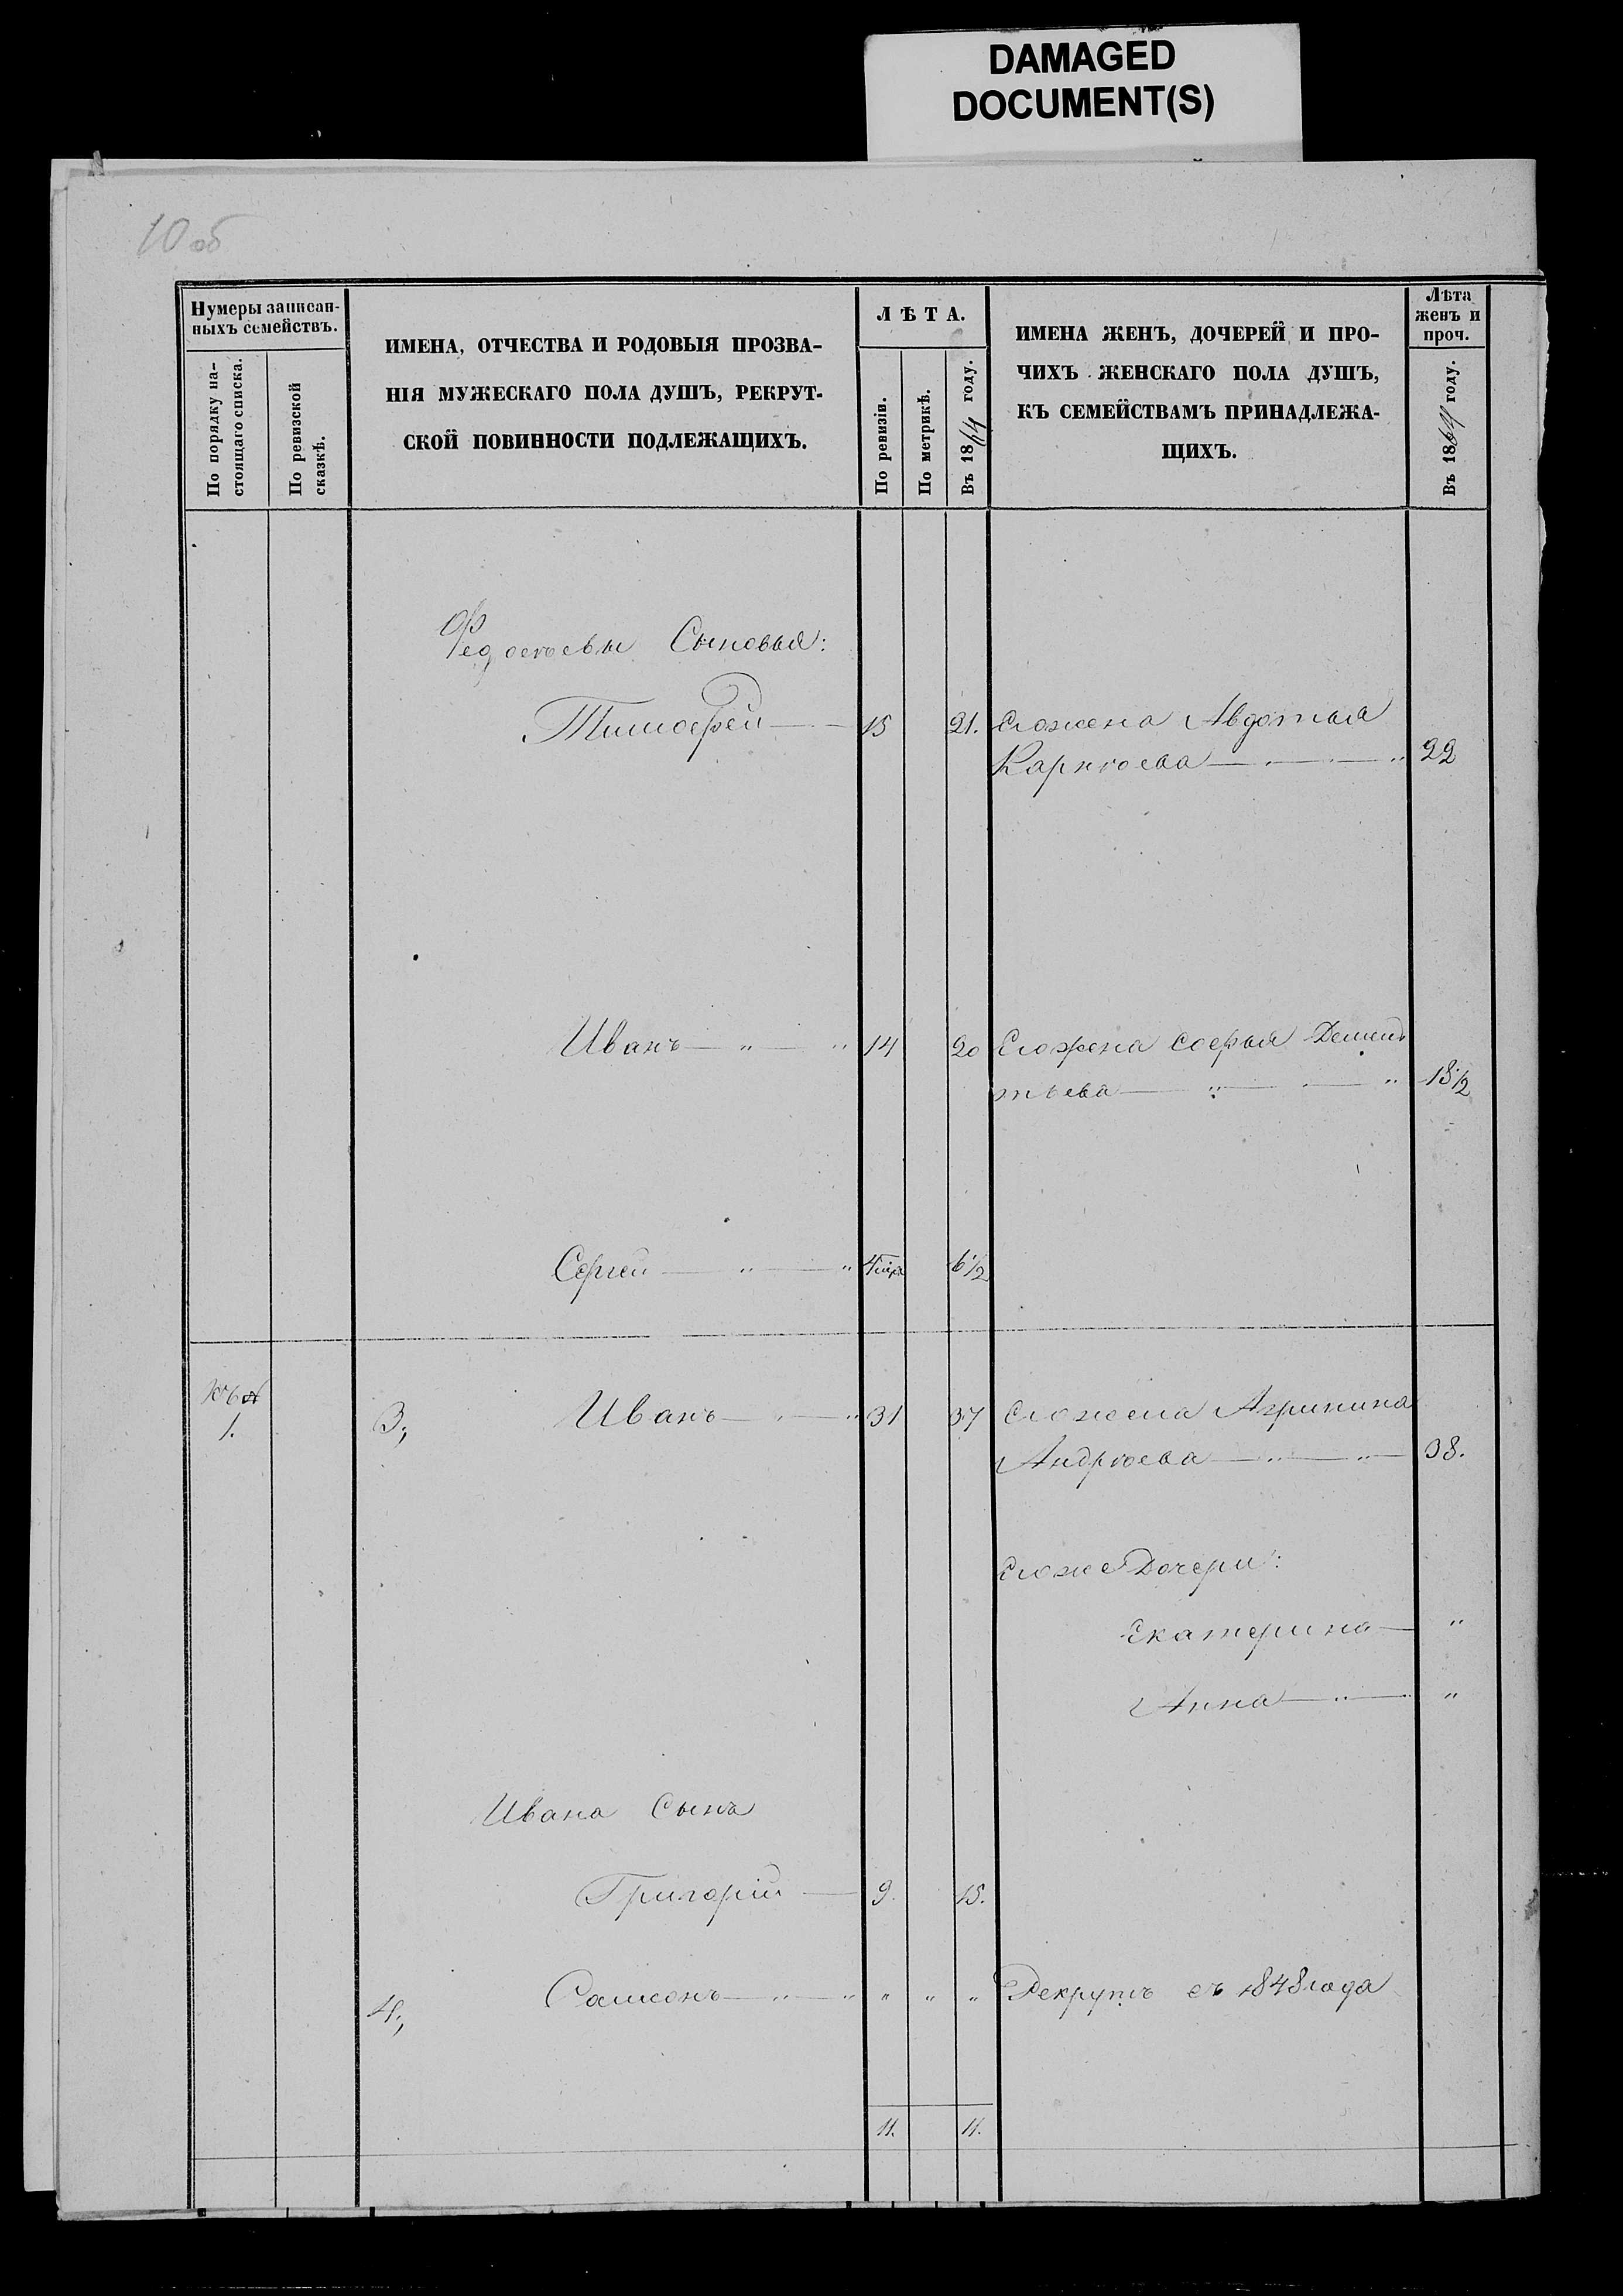 DAMAGED
DOCUMENT(S)
10 об
Нумеры записан-
ныхъ семействъ.
По порядку на-
стоящаго списка.
По ревизской
сказкѣ.
ИМЕНА, ОТЧЕСТВА И РОДОВЫЯ ПРОЗВА-
НІЯ МУЖЕСКАГО ПОЛА ДУШЪ, РЕКРУТ-
СКОЙ ПОВИННОСТИ ПОДЛЕЖАЩИХЪ.
ЛѢТА.
По ревизіи.
По метрикѣ.
Въ 1864 году.
ИМЕНА ЖЕНЪ, ДОЧЕРЕЙ И ПРО-
ЧИХЪ ЖЕНСКАГО ПОЛА ДУШЪ,
КЪ СЕМЕЙСТВАМЪ ПРИНАДЛЕЖА-
ЩИХЪ.
Лѣта
женъ и
проч.
Въ 1864 году.
Сыновья:
Тимофей 15 21. Его жена Авдотья
Карпѣева 22
Иванъ 14 20 Его жена Софья Демен
тьева 18 1/2
Сергей 6 1/2
1.
3; Иванъ 31 37 Его жена Агрипина
Андрѣева 38.
Его же Дочери:
Екатерина "
Анна "
Ивана Сынъ
Григорій 9. 15.
4; Самсонъ " " " Рекрутъ съ 1848 года
11. 11.